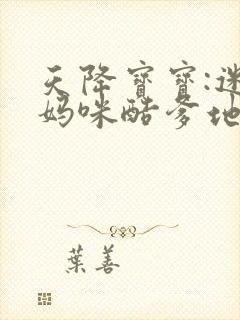 天降寶寶:迷
媽咪酷爹地
葉善